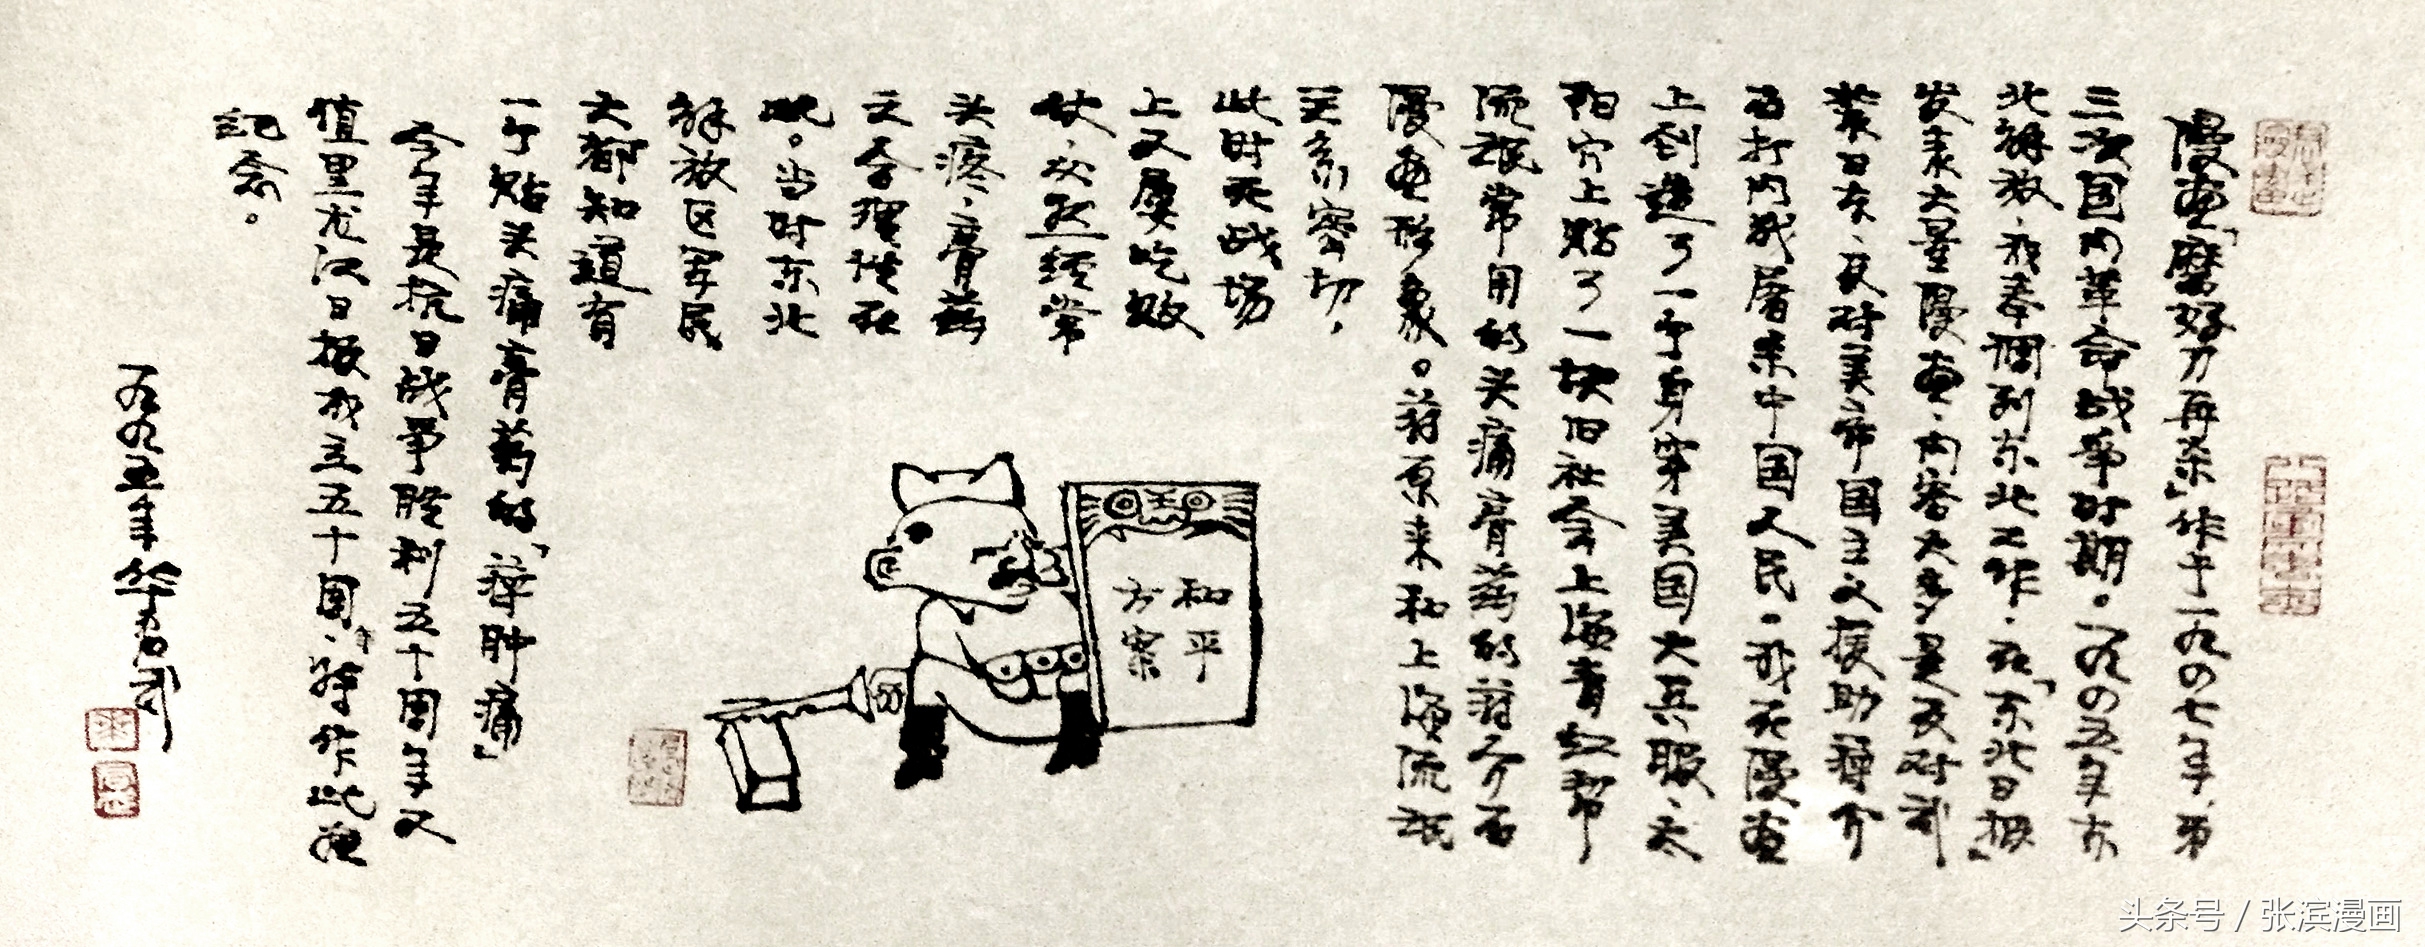 漫画「磨好刀再杀」作于一九四七年,第
三次国内革命战争时期。一九四五年东
北解放,我奉调到东北工作,在「东北日报」
发表大量漫画,内容大多是反对武
装日本,反对美帝国主义援助蒋介
石打内战屠杀中国人民。我在漫画
上创造了一个身穿美国大兵服,太
阳穴上贴了一块旧社会上海青红帮
流氓常用的头痛膏药的蒋介石
漫画形象。蒋原来和上海流氓
关系密切,
此时在战场
上又屡吃败
仗,必然经常
头疼,膏药
又合理性在
此。当时东北
解放区军民
大都知道有
一个贴头痛膏药的「蒋肿痛」
今年是抗日战争胜利五十周年又
值黑龙江日报成立五十周年,特作此画
记念。
一九九五年 华君武
和平
方案
头条号 / 张滨漫画